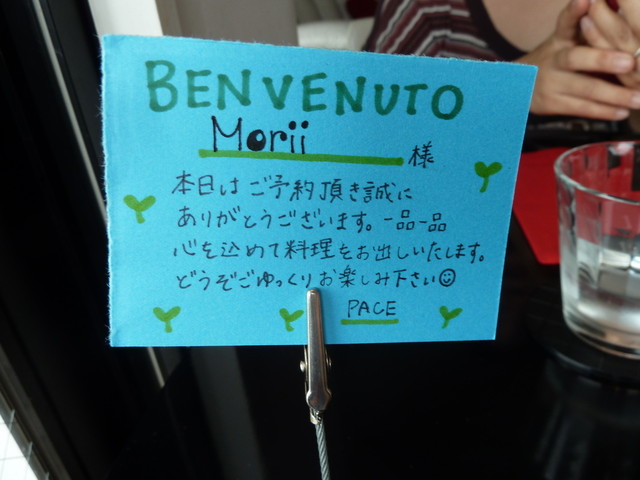 BENVENUTO
Morii 様
本日はご予約頂き誠に
ありがとうございます。一品一品
心を込めて料理をお出しいたします。
どうぞごゆっくりお楽しみ下さい☺
PACE